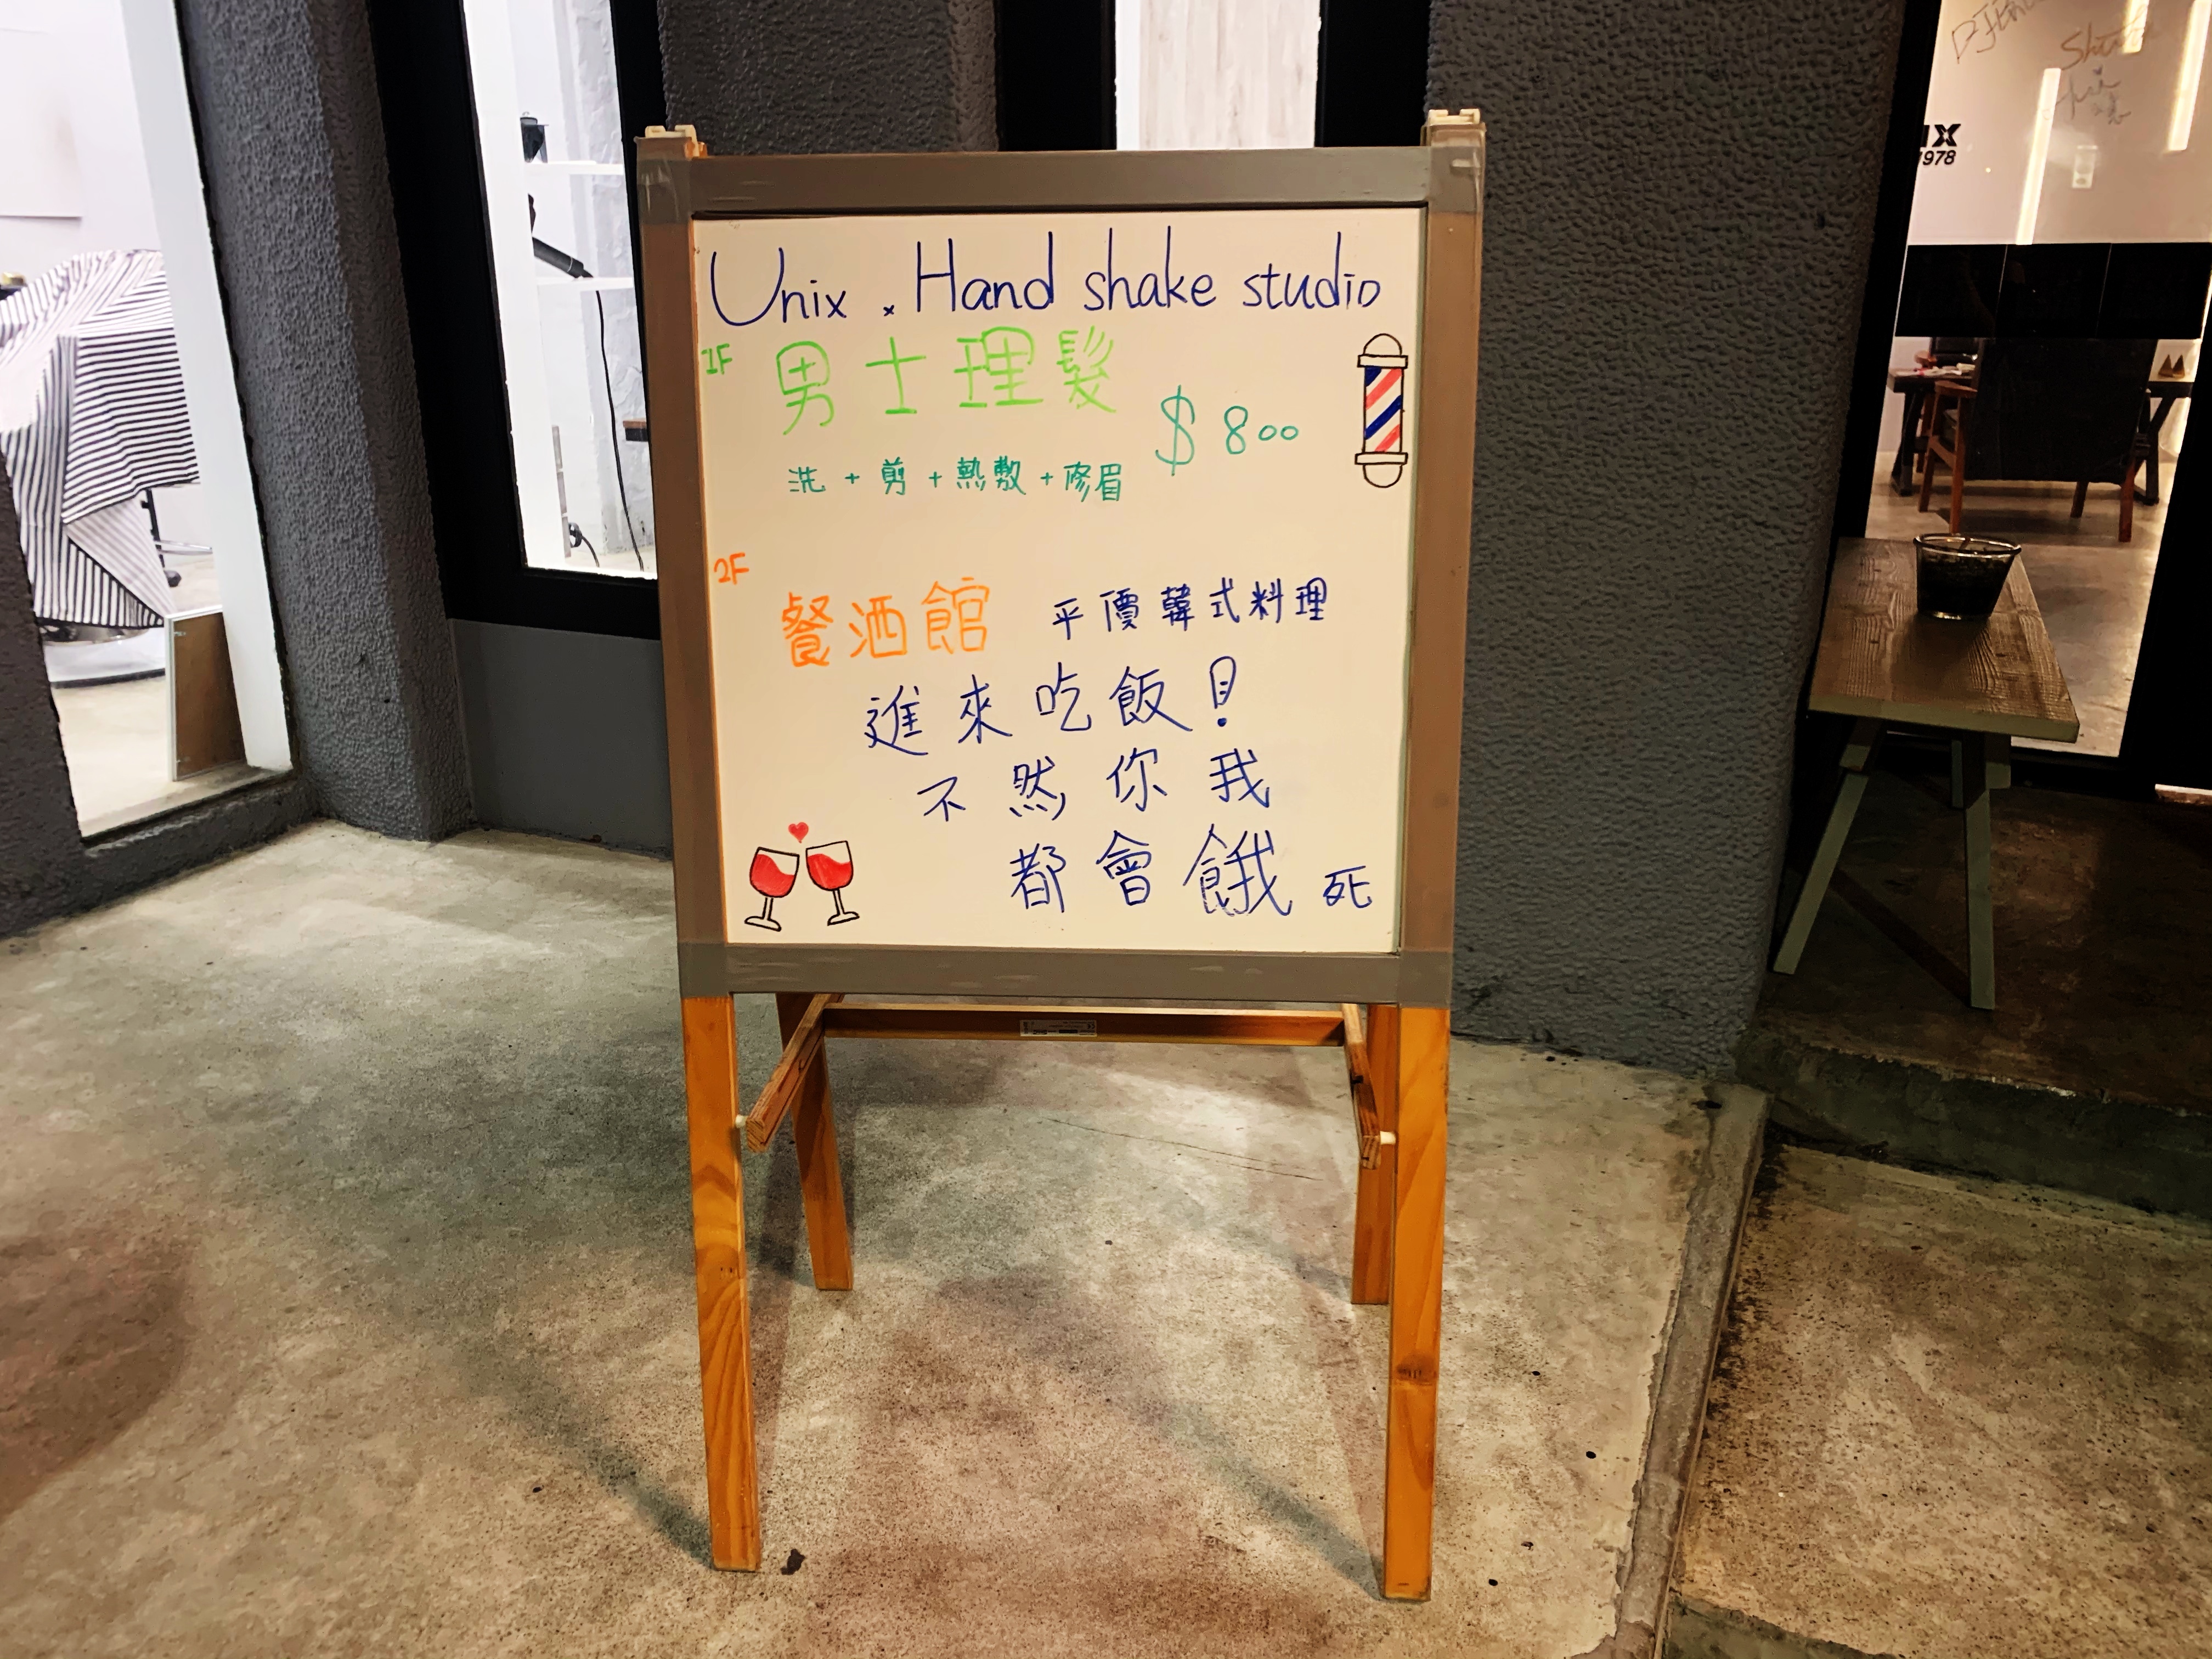 Unix × Hand shake studio
1F 男士理髮
$800
洗+剪+熱敷+修眉
2F
餐酒館 平價韓式料理
進來吃飯!
不然你我
都會餓死
IX
1978